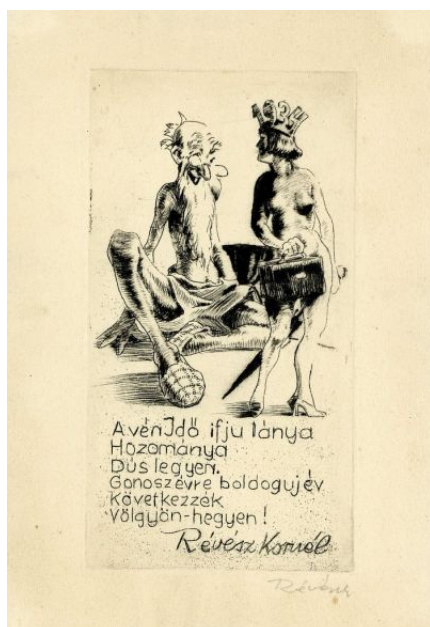 A vén Idő ifju lánya
Hozománya
Dús legyen.
Gonosz évre boldog uj év
Következzék
Völgyön-hegyen!
Révész Kornél
Révész